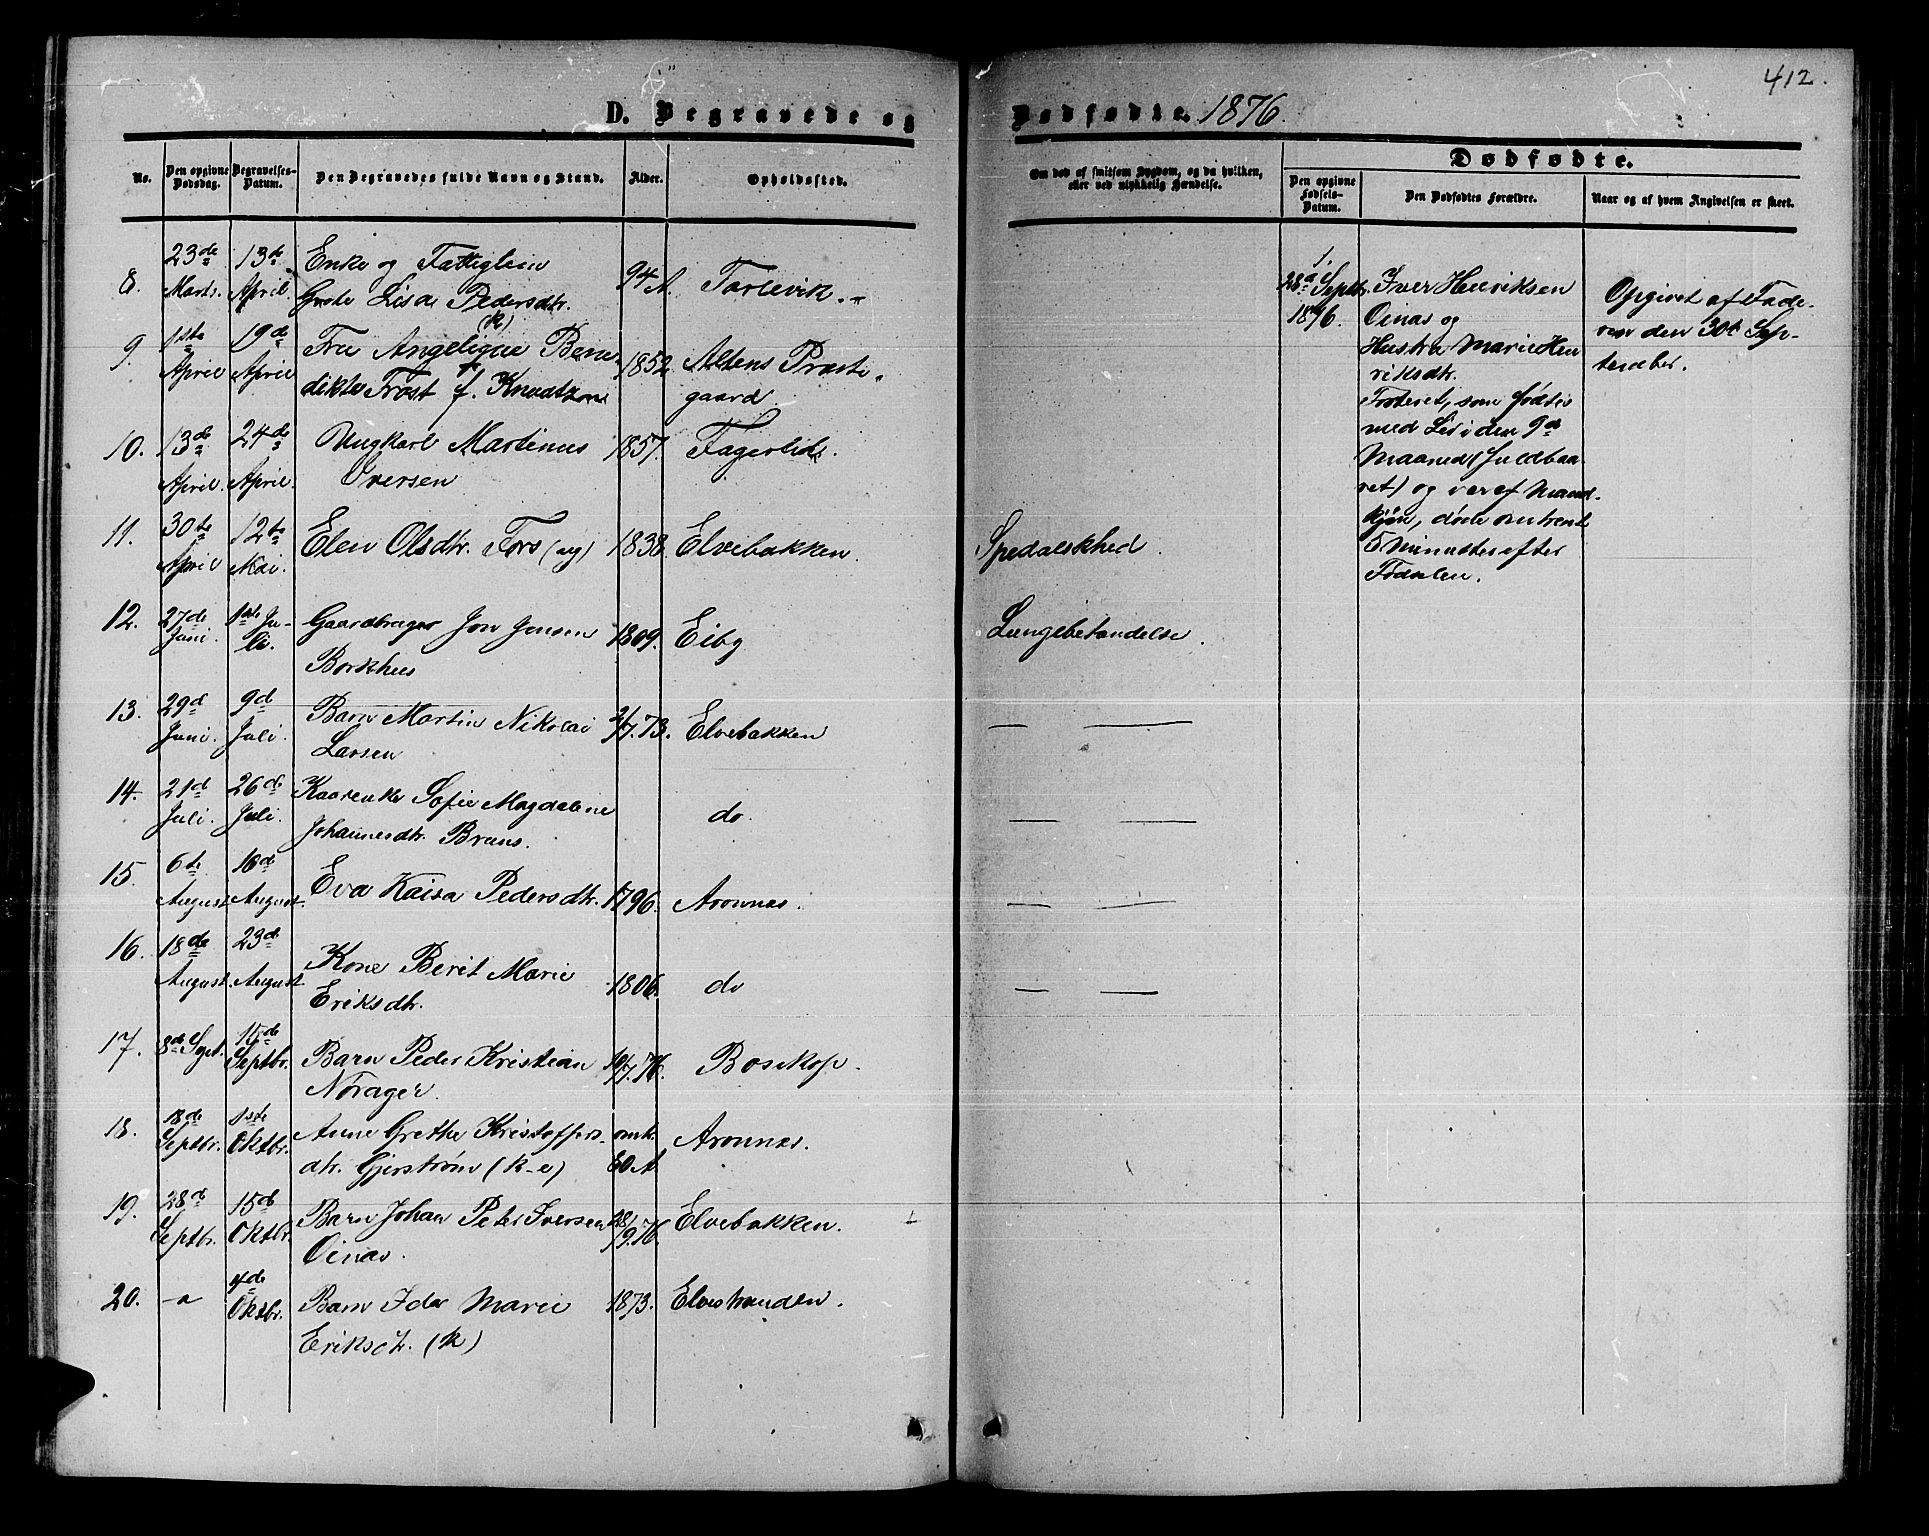 412.
D. Begravede og Dødfødte. 1876.
No.
Den opgivne Dødsdag.
Begravelses-Datum.
Den Begravedes fulde Navn og Stand.
Alder.
Opholdssted.
Om død af smitsom Sygdom, og da hvilken,
eller ved ulykkelig Hændelse.
Dødfødte.
Den opgivne Fødsels-Datum.
Den Dødfødtes Forældre.
Naar og af hvem Angivelsen er skeet.
8. 23de Marts. 13de April. Enke og Fattiglem
Grete Lisa Pedersdtr. 94 A. Talevik.
(k)
9. 1ste April 19de April Fru Angelique Bene-
dikte Frost f. Knudtzon 1852 Altens Præste-
gaard.
10. 13de April. 24de April. Ungkarl Martinus
Iversen 1857. Fagerlid.
11. 30te April 12te Mai. Elen Olsdtr. Fors (ug) 1838. Elvebakken. Spedalskhed.
12. 27de Juni 1ste Ju-
li. Gaardbruger Jon Jensen
Borkhus 1809. Eiby Lungebetændelse.
13. 29de Juni. 9de Juli. Barn Martin Nikolai
Larsen 2/7.73. Elvebakken — —
14. 21de Juli. 26de Juli. Sofie Magdalene
Johannesdtr. Bruns. do. — —
15. 6te August 10de August. Eva Kaisa Pedersdtr. 1796. Aronnæs. — —
16. 18de August. 23de August. Kone Berit Marie
Eriksdtr. 1806. do — —
17. 8de Sept. 15de Septbr. Barn Peder Kristian
Nørager. 10/7.76. Bosekop.
18. 18de Septbr. 1ste Oktbr. Anne Grethe Kristoffers-
dtr. Gjerstrøm (k-e) omtr.
60 A. Aronnæs.
19. 28de Septbr. 15de Oktbr. Barn Johan Peter Iversen
Oinas. 28/9.76. Elvebakken.
20. 4de Oktbr. Barn Ida Marie
Eriksdtr. (k) 1873. Elvestranden.
1.
28de Septbr.
1876.
Iver Henriksen
Oinas og
Hustru Marie Hen-
riksdtr.
Fosteret, som fødtes
med Liv i den 9de
Maaned (fuldbaa-
ret) og var af Mand-
kjøn, døde omtrent
5 Minutter efter
Fødselen.
Opgivet af Fade-
ren den 30te Sep-
tember.